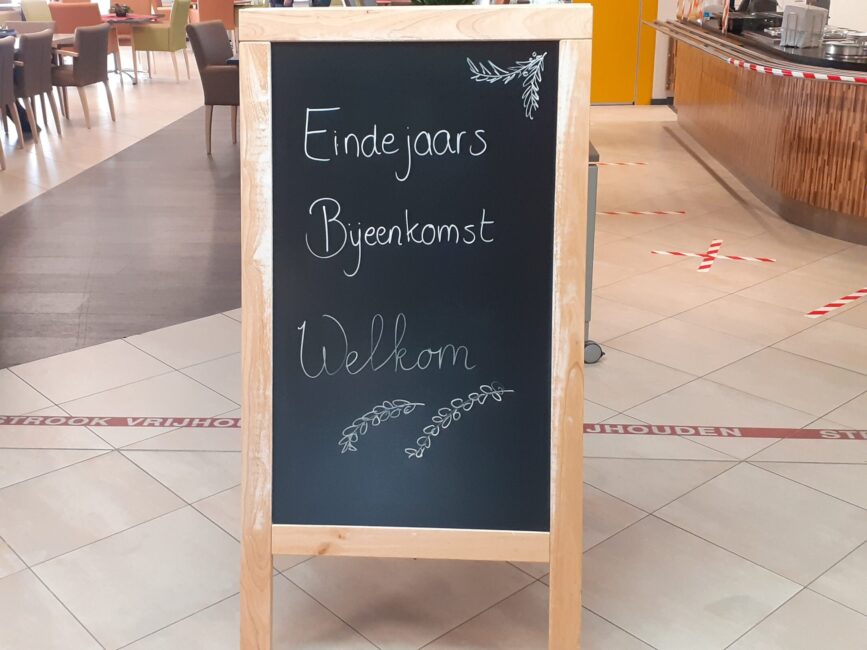 Eindejaars
Bijeenkomst
Welkom
STROOK VRIJHOU
JHOUDEN ST